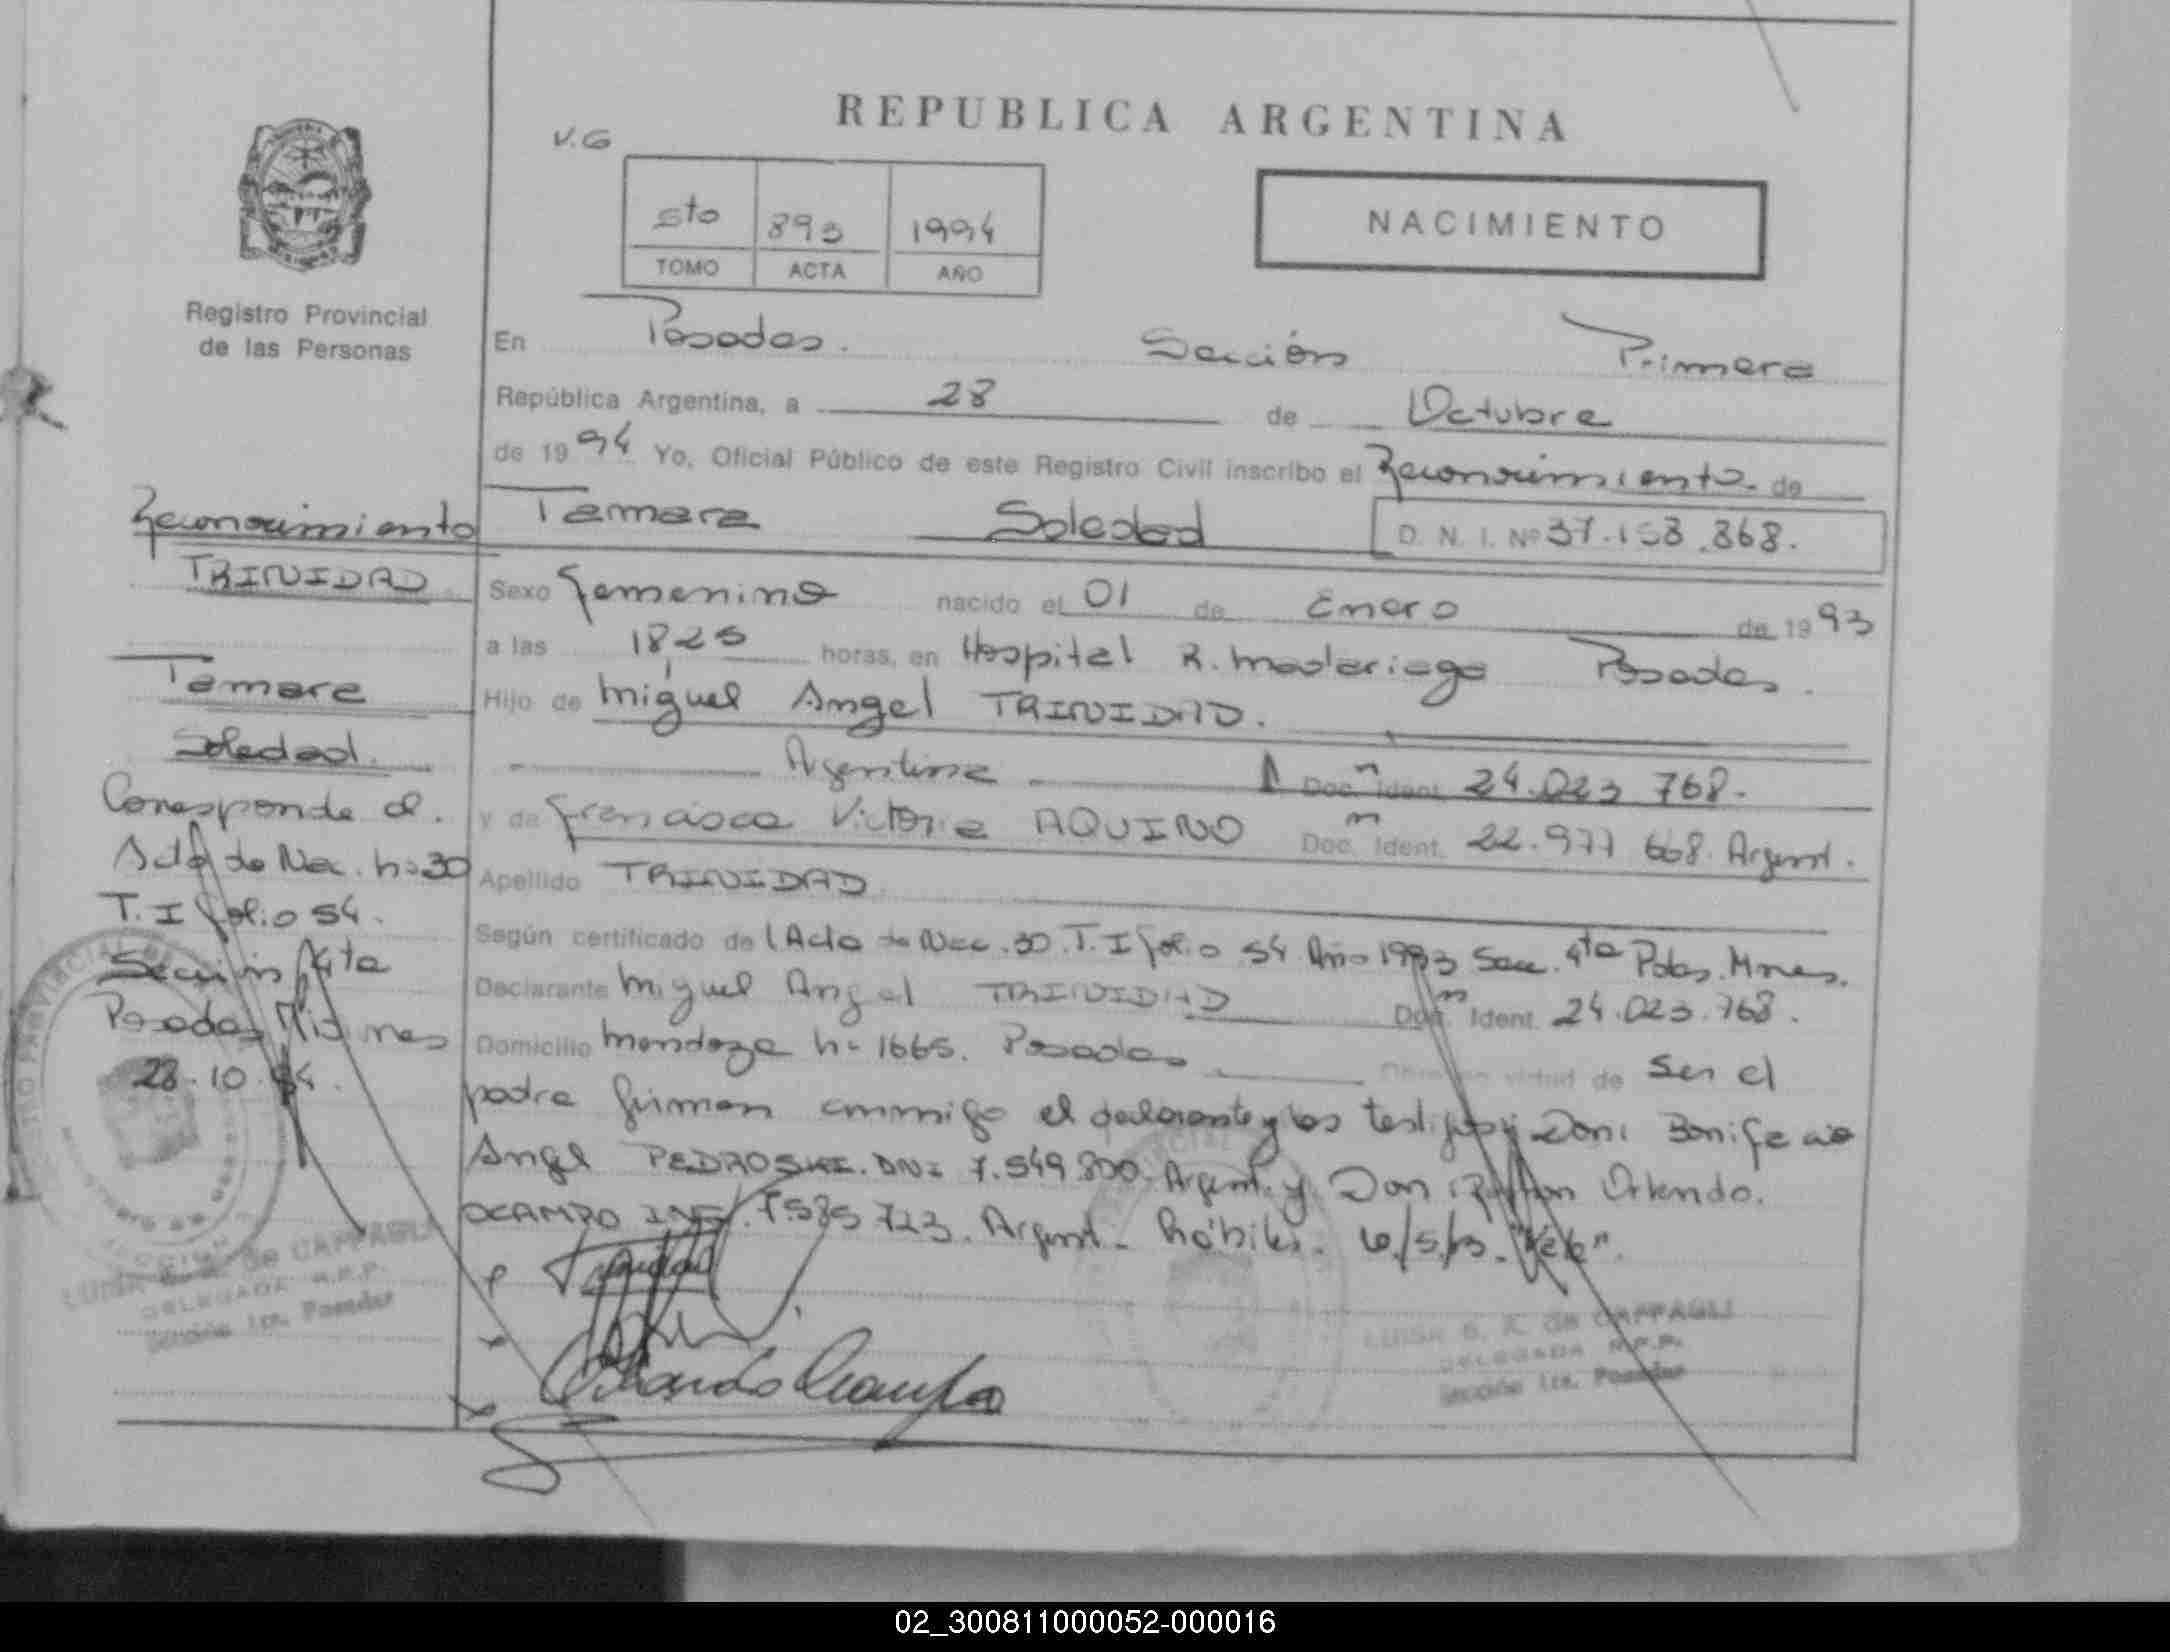 REPUBLICA ARGENTINA
V.G
5to 893 1994
TOMO ACTA AÑO
NACIMIENTO
Registro Provincial
de las Personas
En Posadas. Sección Primera
República Argentina, a 28 de Octubre
de 1994 Yo, Oficial Público de este Registro Civil inscribo el Reconocimiento de
Tamara Soledad D. N. I. Nº 37.158.868.
Sexo Femenino nacido el 01 de Enero de 1993
a las 1825 horas, en Hospital R. Madariaga Posadas.
Hijo de Miguel Angel TRINIDAD.
Argentina Doc. Ident. 24.023 768.
y de Francisca Victoria AQUINO Doc. Ident. 22.977 668. Argent.
Apellido TRINIDAD
Según certificado de l Acta de Nac. 30. T. I folio 54 Año 1993 Secc. 4ta Pdas. Mnes.
Declarante Miguel Angel TRINIDAD Doc. Ident. 24.023.768.
Domicilio Mendoza nº 1665. Posadas virtud de ser el
padre firman conmigo el declarante y los testigos Don: Bonifacio
Angel PEDROSKI. DNI 7.549.800. Argent. y Don Orlando.
OCAMPO 7.585 723. Argent. hábiles.
Orlando Ocampo
Reconocimiento
TRINIDAD
Tamara
Soledad.
Corresponde al.
Acta de Nac. nº 30
T. I folio 54.
Sección 4ta
Posadas Misiones
28.10.94.
LUISA de CAFFAGLI
DELEGADA R.P.P.
Sección 1ra. Posadas
LUISA S. K. de CAFFAGLI
DELEGADA R.P.P.
Sección 1ra. Posadas
02_300811000052-000016